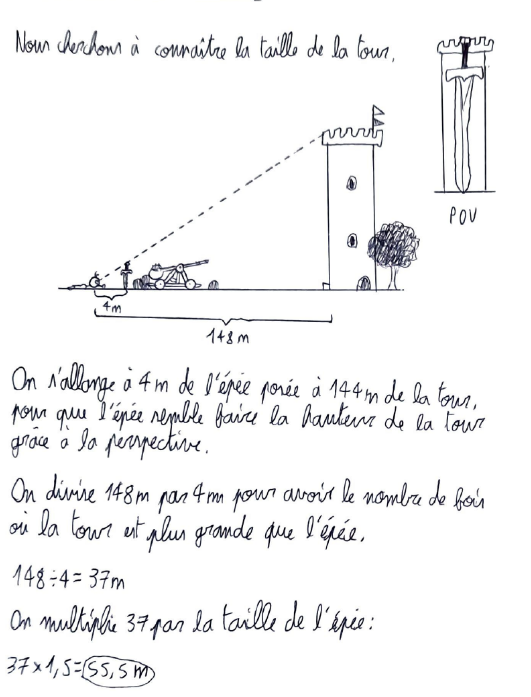 Nous cherchons à connaître la taille de la tour.
POV
4m
148m
On s'allonge à 4m de l'épée posée à 144m de la tour,
pour que l'épée semble faire la hauteur de la tour
grâce à la perspective.
On divise 148m par 4m pour avoir le nombre de fois
où la tour est plus grande que l'épée.
148÷4=37m
On multiplie 37 par la taille de l'épée:
37×1,5=55,5m